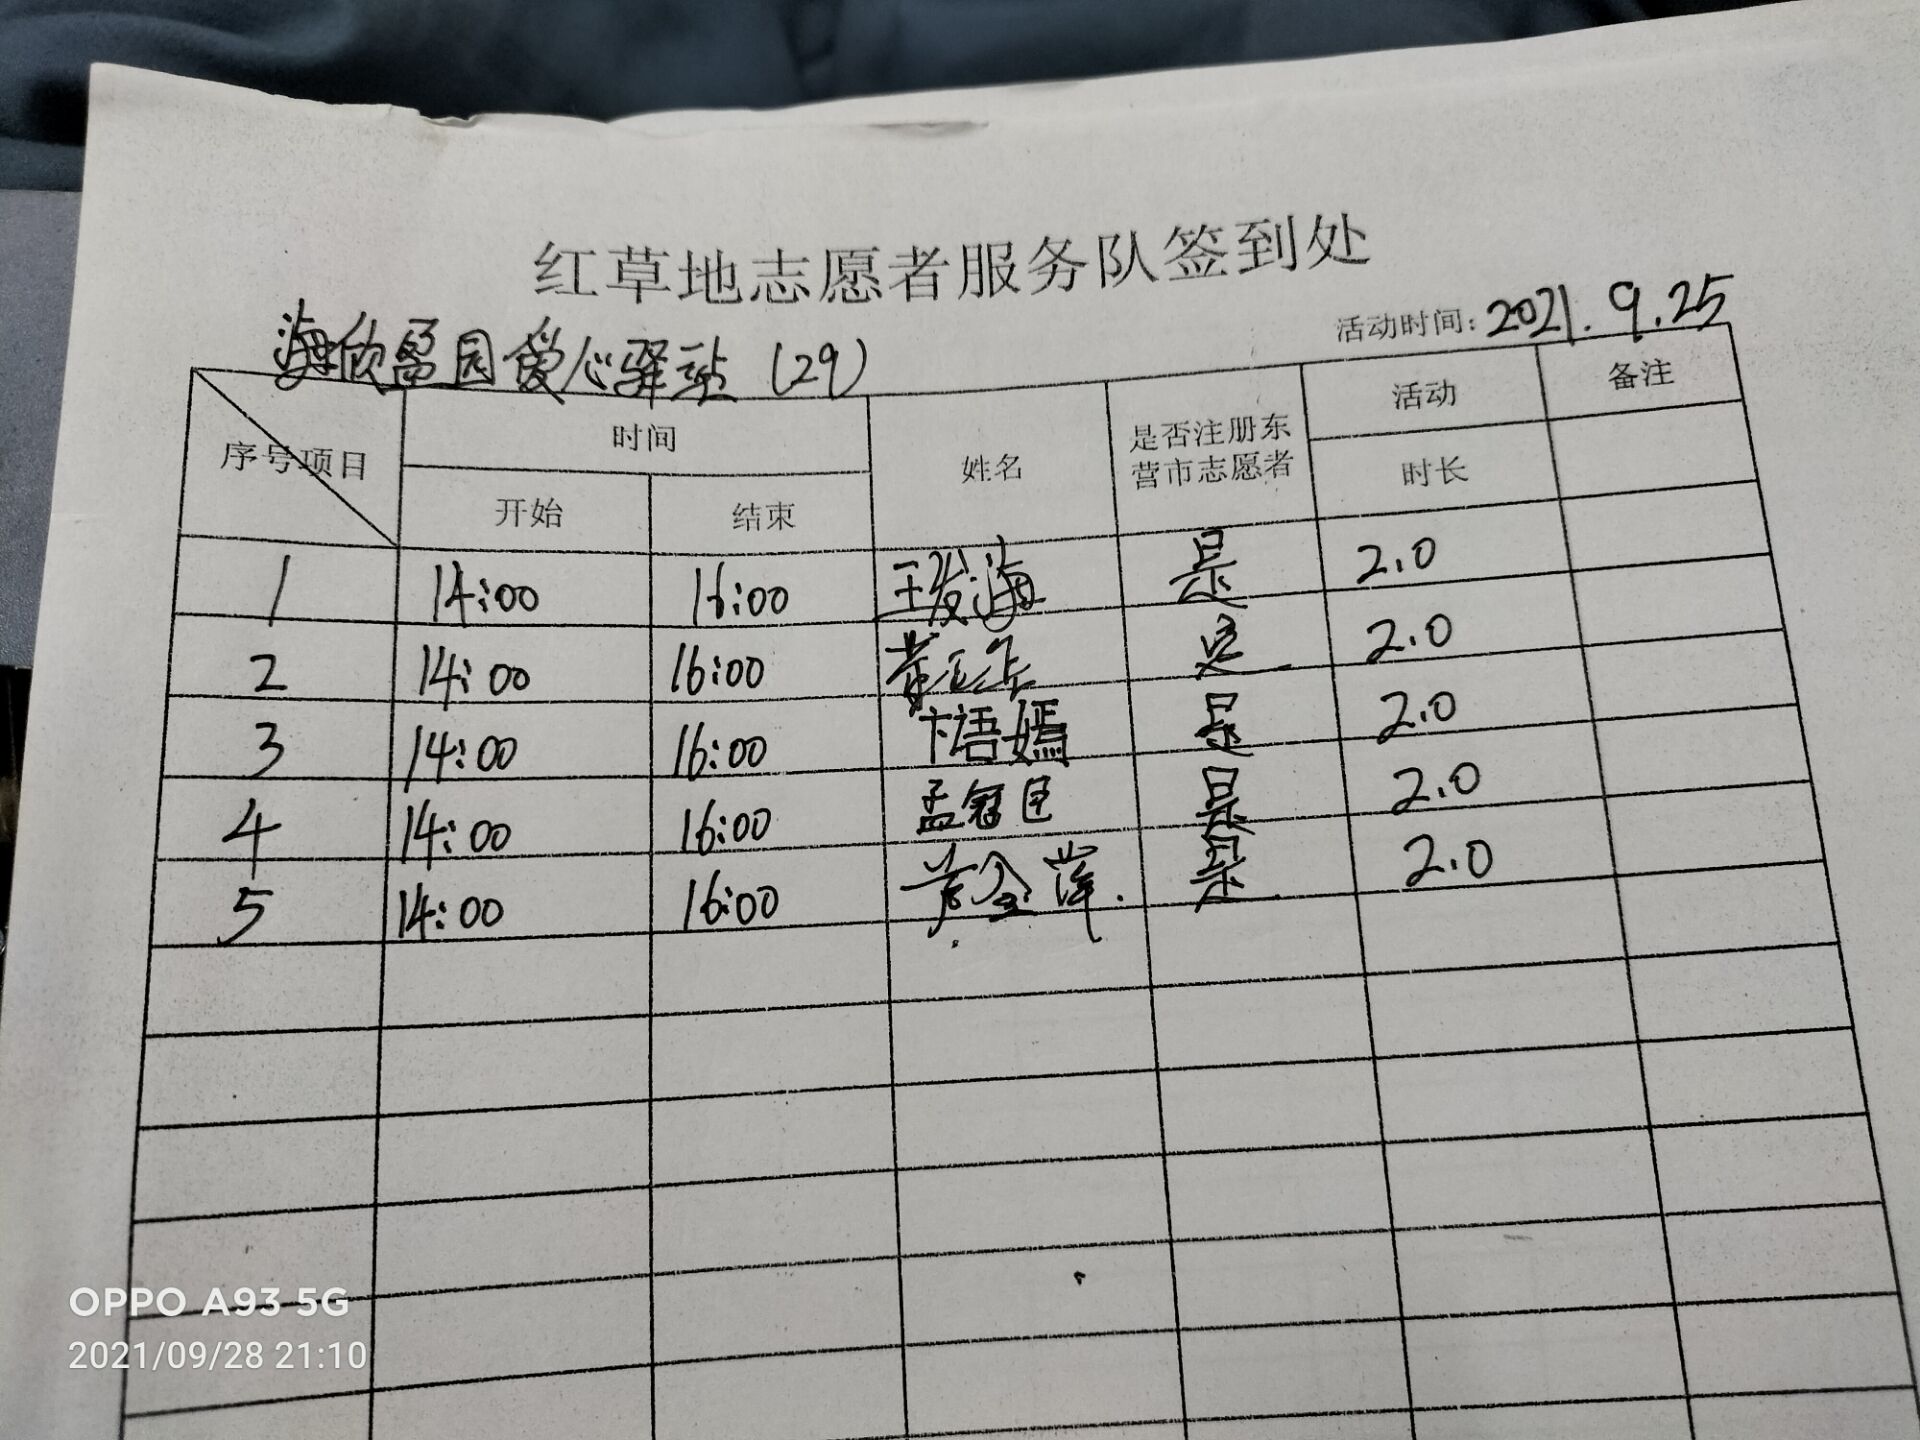 红草地志愿者服务队签到处
海欣馨园爱心驿站（29）
活动时间：2021.9.25
序号项目 时间 姓名 是否注册东营市志愿者 活动 备注
开始 结束 时长
1 14:00 16:00 王发海 是 2.0
2 14:00 16:00 是 2.0
3 14:00 16:00 卞语嫣 是 2.0
4 14:00 16:00 孟冠臣 是 2.0
5 14:00 16:00 黄金萍. 是 2.0
OPPO A93 5G
2021/09/28 21:10